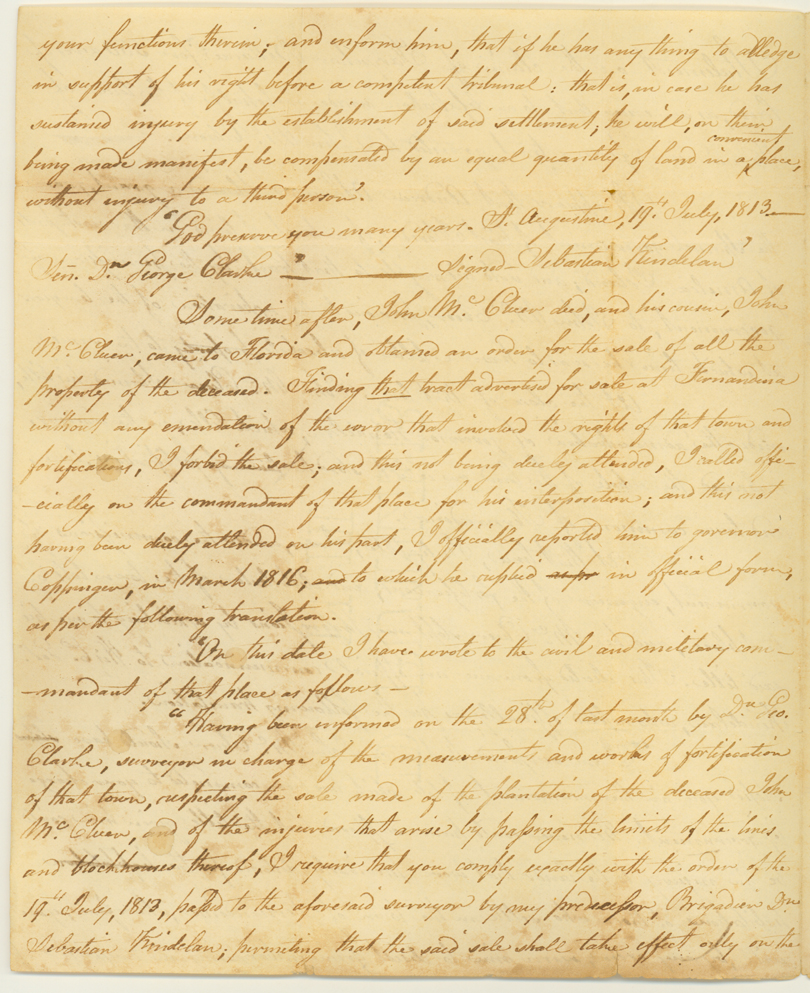 your functions therein; and inform him, that if he has any thing to alledge
in support of his right before a competent tribunal: that is, in case he has
sustained injury by the establishment of said settlement; he will, on their
being made manifest, be compensated by an equal quantity of land in a convenient place,
without injury to a third person".
"God preserve you many years. St. Augustine, 19th. July, 1813.—
Señ. Dn. George Clarke —"— signed— Sebastian Kindelan"
Some time after, John Mc. Cluer died, and his cousin, John
Mc. Cluer, came to Florida and obtained an order for the sale of all the
property of the deceased. Finding that tract advertised for sale at Fernandina
without any emendation of the error that involved the rights of that town and
fortifications, I forbid the sale; and this not being duely attended, I called offi-
-cially on the commandant of that place for his interposition; and this not
having been duely attended on his part, I officially reported him to governor
Coppinger, in March 1816; and to which he replied as pr in official form,
as per the following translation.
"On this date I have wrote to the civil and military com-
-mandant of that place as follows—
"Having been informed on the 28th. of last month by Dn. Geo.
Clarke, surveyor in charge of the measurements and works of fortification
of that town, respecting the sale made of the plantation of the deceased John
Mc. Cluer, and of the injuries that arise by passing the limits of the lines
and blockhouses thereof, I require that you comply exactly with the order of the
19th. July, 1813, passd to the aforesaid surveyor by my predecessor, Brigadier Dn.
Sebastian Kindelan; permiting that the said sale shall take effect only on the